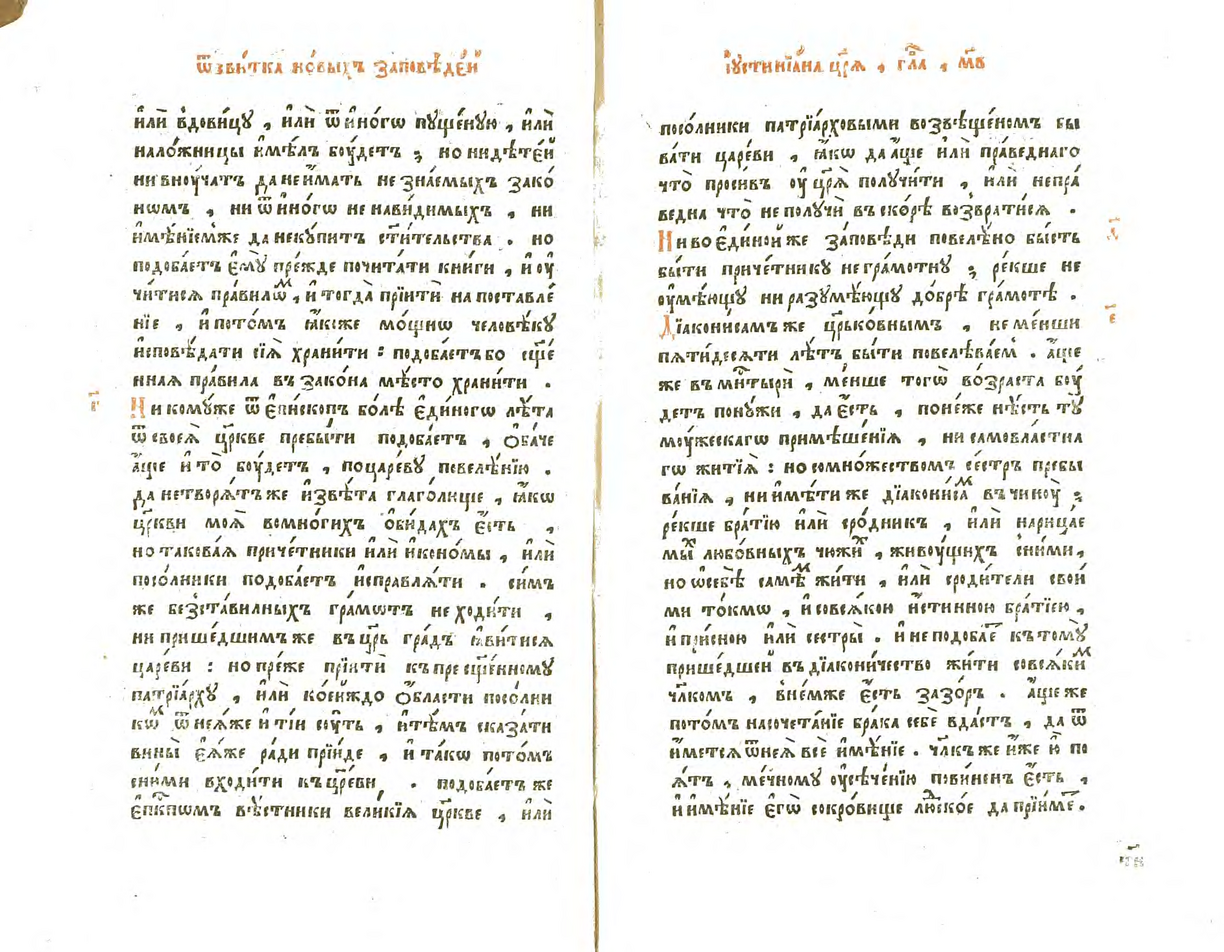 ѿ свитка новыхъ заповѣдéй
и҆лѝ вдови́цу , и҆лѝ ѿ и҆но́гѡ пуще́ную , и҆лѝ
нало́жницы и҆мѣ́лъ бу́детъ ; но ни дѣте́й
ни вну́чатъ да не и҆мать не зна́емыхъ зако́
номъ , ни ѿ и҆но́гѡ не нави́димыхъ , ни
и҆мѣ́нїемже да не ку́питъ ст҃и́тельства . но
подоба́етъ є҆му̀ пре́жде почита́ти кни́ги , и҆ оу҆
чи́тисѧ пра́вилѡⷨ , и҆ тогда̀ прїи́ти на поставле́
нїе , и҆ пото́мъ ꙗ҆́коже мо́щнѡ человѣ́ку
и҆сповѣ́дати сїѧ̀ храни́ти : подоба́етъ бо сщ҃е́
ннаѧ пра́вила въ зако́на мѣ́сто храни́ти .
Ни кому́же ѿ є҆пи́скопъ бо́лѣ є҆ди́ногѡ лѣ́та
ѿ своеѧ̀ цр҃кве пребы́ти подоба́етъ , ѻ҆ба́че
а҆́ще и҆ то̀ бу́детъ , по царе́ву повелѣ́нїю .
да не творѧ́тъ же и҆звѣ́та глаго́люще , ꙗ҆́кѡ
цр҃кви моѧ̀ во мно́гихъ ѻ҆би́дахъ є҆́сть ,
но такова́ѧ приче́тники и҆лѝ и҆коно́мы , и҆лѝ
посо́лники подоба́етъ и҆справлѧ́ти . си́мъ
же без̾ ста́вилныхъ гра́мотъ не ходи́ти ,
ни прише́дшимъ же въ цр҃ь гра́дъ ꙗ҆ви́тисѧ
царе́ви : но пре́же прїи́ти къ пресщ҃е́нному
патрїа́рху , и҆лѝ кое́йждо ѻ҆́бласти посо́лни
кѡⷨ ѿ неѧ́же и҆ ті́и су́ть , и҆ тѣ́мъ сказа́ти
вины̀ є҆ѧ́же ра́ди прїи́де , и҆ та́кѡ пото́мъ
с ни́ми входи́ти къ цр҃е́ви . подоба́етъ же
є҆пⷭ҇кпѡмъ вѣ́стники вели́кїѧ цр҃кве , и҆лѝ
і҆устинїа́на цр҃ѧ̀ , гла̀ , м҃в
посо́лники патрїа́рховыми возвѣще́номъ бы
ва́ти царе́ви , ꙗ҆́кѡ да а҆́ще и҆лѝ пра́веднаго
что̀ проси́въ оу҆ цр҃ѧ̀ получи́ти , и҆лѝ непра́
ведна что̀ не получѝ въ ско́рѣ возврати́сѧ .
Ни во є҆ди́ной же за́повѣди повелѣ́но бы́сть
бы́ти приче́тнику негра́мотну ; ре́кше не
оу҆мѣ́ющу ни разумѣ́ющу до́брѣ гра́мотѣ .
Дїа́конисамъ же цр҃ько́внымъ , не ме́нши
пѧти́десѧти лѣ́тъ бы́ти повелѣва́емⷨ . а҆́ще
же въ мⷭ҇нтырѝ , ме́нше тогѡ̀ во́зраста бу́
детъ пону́жи , да є҆́сть , поне́же нѣ́сть ту̀
му́жескагѡ примѣше́нїѧ , ни самовла́стна
гѡ житїѧ̀ : но со мно́жествомъ се́стръ пребы
ва́нїѧ , ни и҆мѣ́ти же дїакони́саⷨ въ чину̀ ;
ре́кше бра́тїю и҆лѝ сро́дникъ , и҆лѝ нарица́е
мыⷯ любо́вныхъ чю́жиⷯ , живу́щихъ с ни́ми ,
но ѡ҆ себѣ̀ самѣⷨ жи́ти , и҆лѝ с роди́тели свои́
ми то́кмѡ , и҆ со всѧ́кою и҆́стинною бра́тїею ,
и҆ при́сною и҆лѝ сестры̀ . и҆ не подоба́еⷮ къ тому̀
прише́дшей въ дїакони́чество жи́ти со всѧ́киⷨ
чл҃комъ , в не́мже є҆́сть зазо́ръ . а҆́ще же
пото́мъ на сочета́нїе бра́ка себѐ вда́стъ , да ѿ
и҆метсѧ ѿ неѧ̀ всѐ и҆мѣ́нїе . чл҃къ же и҆́же ю҆̀ по
ѧ́тъ , ме́чному оу҆сѣче́нїю пови́ненъ є҆́сть ,
и҆ и҆мѣ́нїе є҆гѡ̀ сокро́вище людско́е да прїи́меⷮ .